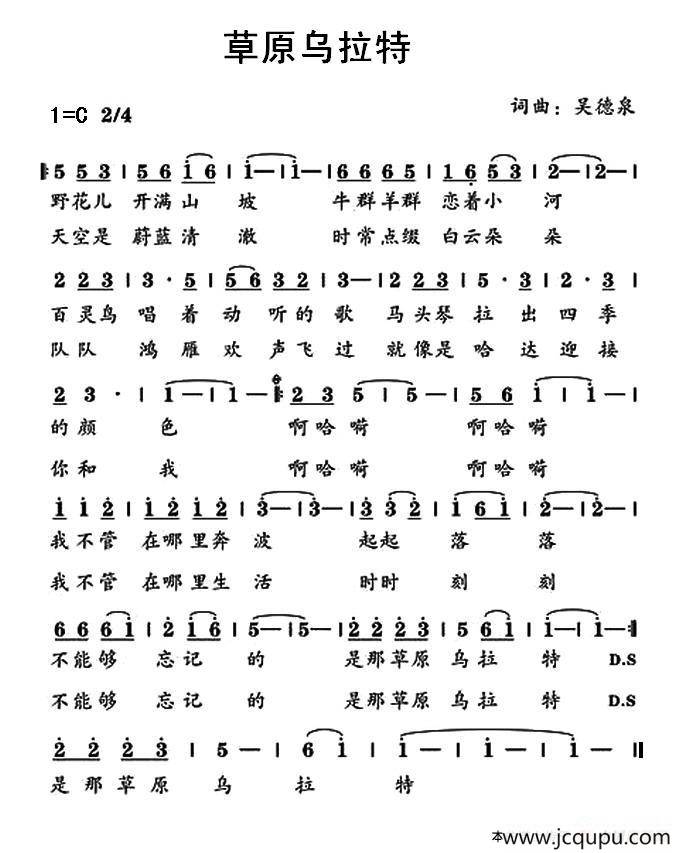 草原乌拉特
1=C 2/4
词曲：吴德泉
5 5 3 | 5 6 1 6 | 1 — | 1 — | 6 6 6 5 | 1 6 5 3 | 2 — | 2 — |
野花儿 开满山 坡 牛群羊群 恋着小 河
天空是 蔚蓝清 澈 时常点缀 白云朵 朵
2 2 3 | 3 · 5 | 5 5 6 3 2 | 3 — | 2 2 3 | 5 · 3 | 2 · 3 |
百灵鸟 唱着动 听的歌 马头琴拉出四季
队队 鸿雁欢 声飞过 就像是哈达迎接
2 3 · | 1 — | 1 — 2 3 5 | 5 — | 5 6 1 | 1 — |
的颜 色 啊哈嗬 啊哈嗬
你和 我 啊哈嗬 啊哈嗬
1 1 2 | 1 2 1 2 | 3 — | 3 — | 3 3 2 | 1 6 1 | 2 — | 2 — |
我不管 在哪里奔 波 起起 落 落
我不管 在哪里生 活 时时 刻 刻
6 6 6 1 | 2 1 6 | 5 — | 5 — | 2 2 2 2 | 5 6 1 | 1 — | 1 — :|
不能够 忘记 的 是那草原 乌拉 特 D.S
不能够 忘记 的 是那草原 乌拉 特 D.S
2 2 2 3 | 5 — | 6 1 | 1 — | 1 — | 1 — ||
是那草原 乌 拉 特
本www.jcqupu.com